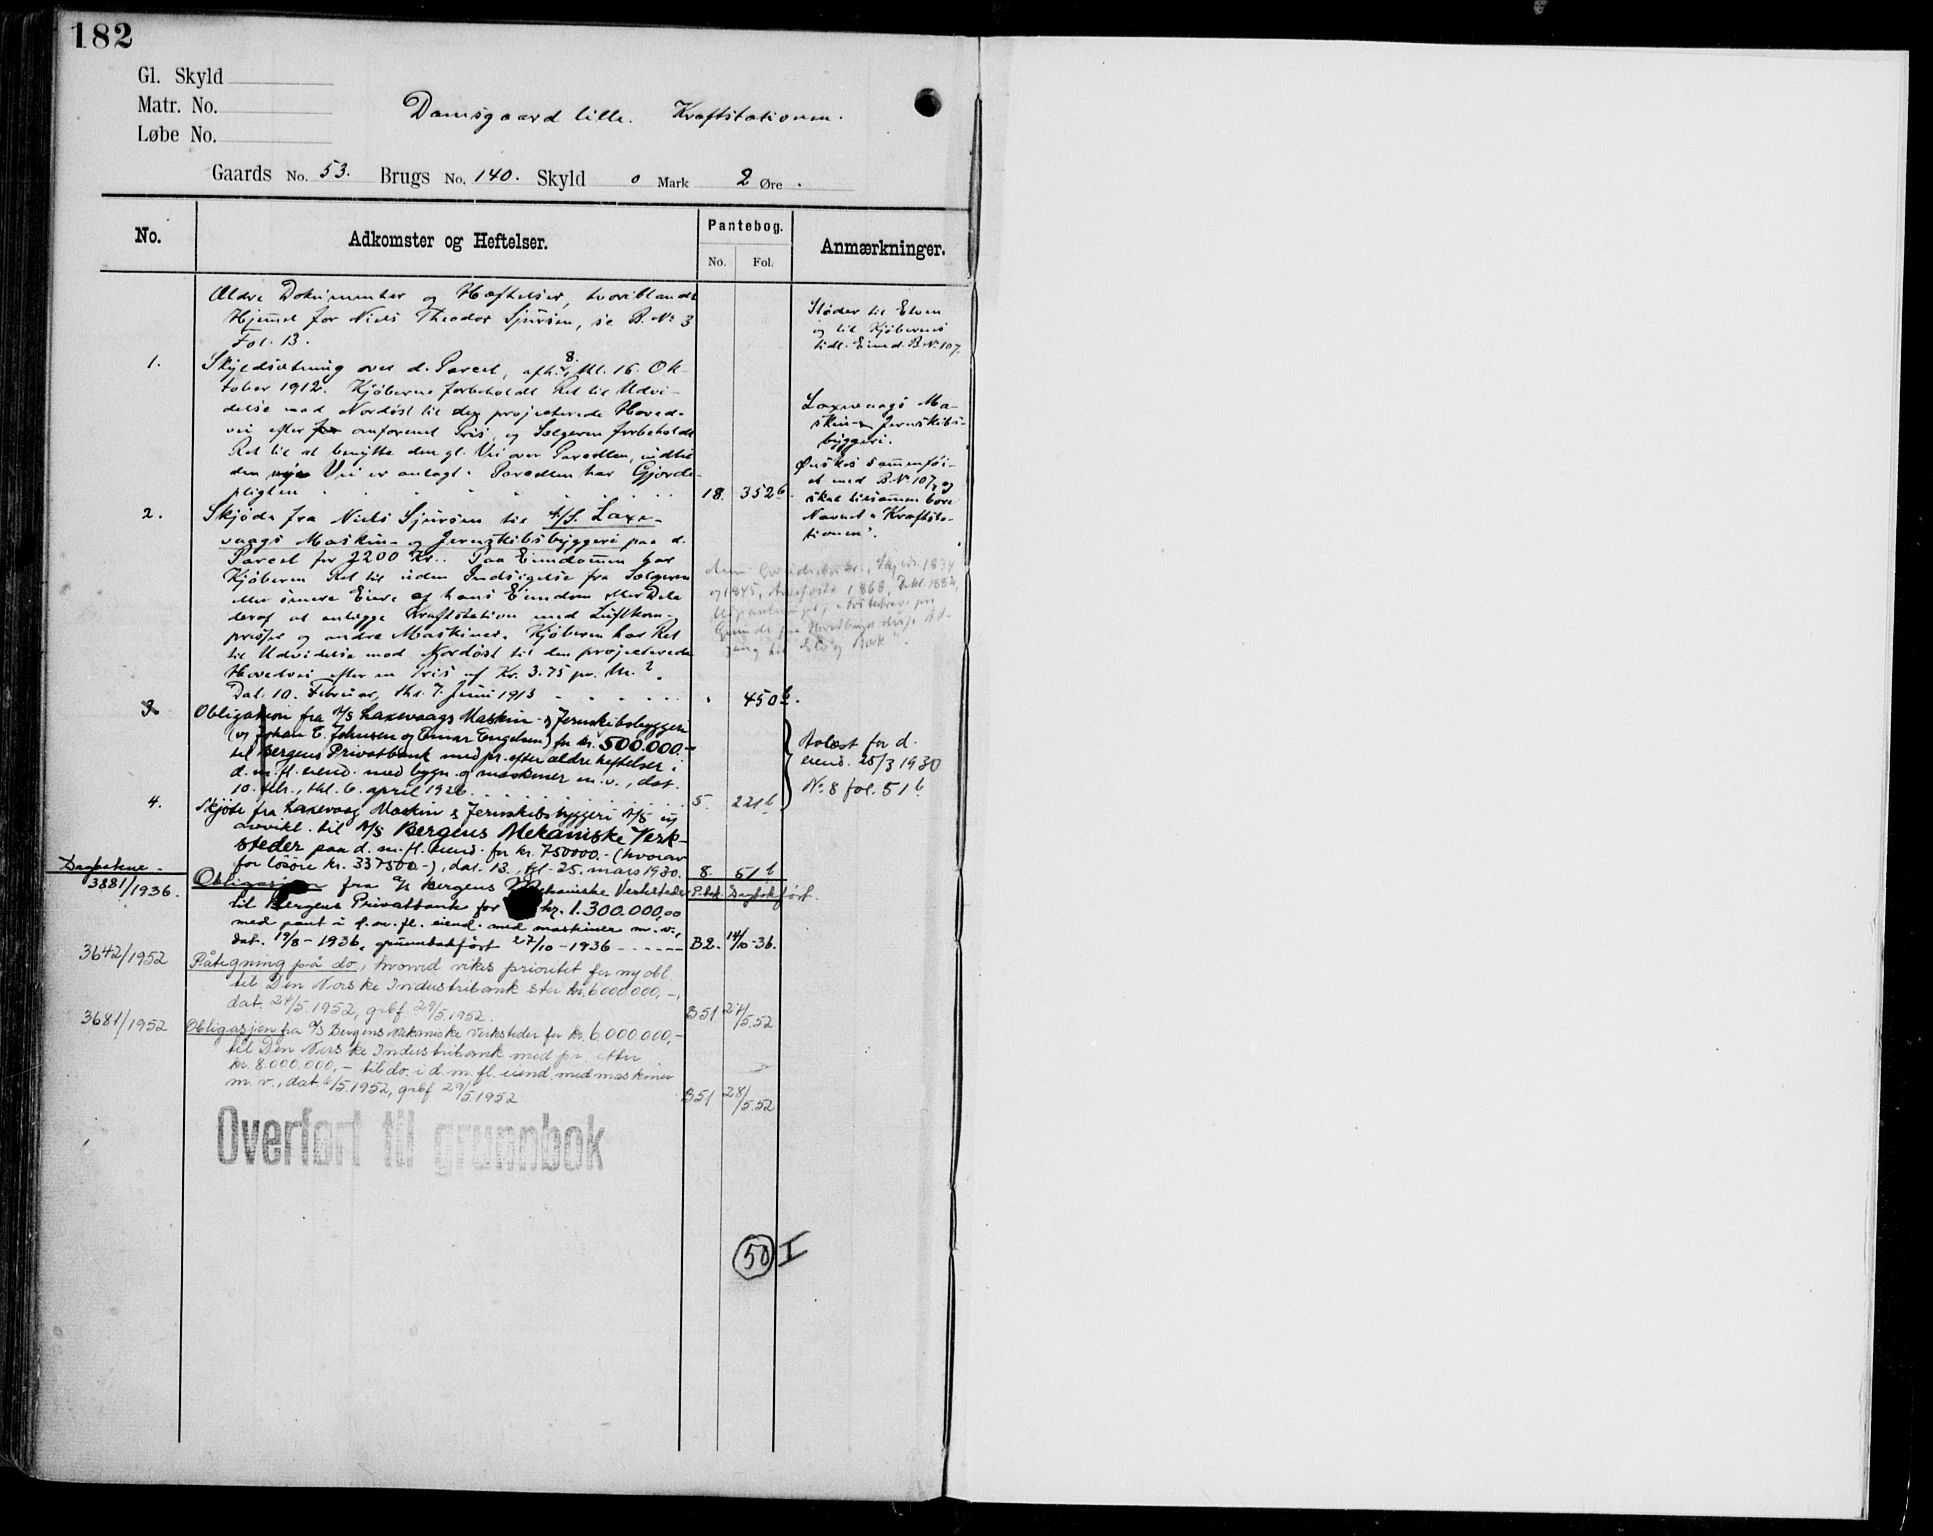 182
Gl. Skyld
Matr. No.
Løbe No.
Damsgaard lille. Kraftstationen.
Gaards No. 53. Brugs No. 140. Skyld 0 Mark 2 Øre.
No. Adkomster og Heftelser. Pantebog. Anmærkninger.
No. Fol.
Ældre Dokumenter og Hæftelser, hvoriblandt
Hjemmel for Niels Theodor Sjursen, se B. No 3
Fol. 13.
1. Skyldsætning over d. Parcel, afh. 8, thl. 16. Ok-
tober 1912. Kjøberne forbeholdt Ret til Udvi-
delse mod Nordøst til den projecterede Hoved-
vei efter anforent Pris, og Sælgeren forbeholdt
Ret til at benytte den gl. Vei over Parcellen, indtil
den nye Vei er anlagt. Parcellen har Gjerde-
pligten . . . . . 18. 352b.
2. Skjøde fra Niels Sjursen til A/S. Laxe-
vaags Maskin- og Jernskibsbyggeri paa d.
Parcel for 2200 Kr.. Paa Eiendommen har
Kjøberen Ret til uden Indsigelse fra Sælgeren
eller senere Eiere af hans Eiendom eller Dele
deraf at anlægge Kraftstation med Luftkom-
pressor og andre Maskiner. Kjøberen har Ret
til Udvidelse mod Nordøst til den projecterede
Hovedvei efter en Pris af Kr. 3.75 pr. M.2.
Dat. 10. Februar, thl. 7. Juni 1913 . . . . . " 450b.
3. Obligation fra A/S Laxevaags Maskin- & Jernskibsbyggeri
(v/ Johan E. Johnsen og Einar Engelsen) for kr. 500.000.-
til Bergens Privatbank med pr. efter ældre heftelser i
d. m. fl. eiend. med bygn. og maskiner m.v., dat.
10. febr., thl. 6. april 1926. . . . . . 5. 221b
4. Skjøte fra Laxevaag Maskin & Jernskibsbyggeri A/S
avvikl. til A/S Bergens Mekaniske Verk-
steder paa d. m. fl. eiend. for kr. 750000.- (hvorav
for løsøre kr. 337500-), dat. 13., thl. 25. mars 1930. 8. 51b
Dagboknr. P.bok. Dagbokført.
3881/1936. Obligasjon fra A/S Bergens Mekaniske Verksteder
til Bergens Privatbank for kr. 1.300.000,00
med pant i d. m. fl. eiend. med maskiner m. v.,
dat. 19/8-1936, grunnbokført 27/10-1936 - - - - - B2. 14/10-36.
3642/1952 Påtegning på do, hvorved vikes prioritet for ny obl
til Den Norske Industribank stor kr. 6000.000,-,
dat. 24/5.1952, grbf. 29/5.1952. B51 27/5.52
3681/1952 Obligasjon fra A/S Bergens Mekaniske Verksteder for kr. 6.000.000,-
til Den Norske Industribank med pr. etter
kr. 8.000.000,- til do. i d. m. fl. eiend. med maskiner
m. v., dat. 6/5.1952, grbf 29/5.1952 B51 28/5.52
Overført til grunnbok
50 I
Støder til Elven
og til Kjøbernes
tidl. Eiend. B. No. 107.
Laxevaags Ma-
skin- & Jernskibs-
byggeri.
Ønskes sammenføi-
et med B. No 107, og
skal tilsammen bære
Navnet "Kraftsta-
tionen".
Skjøde 1834
og 1845, 1868, Dekl. 1882,
Avlæst for d.
eiend. 25/3 1930
No. 8 fol. 51b